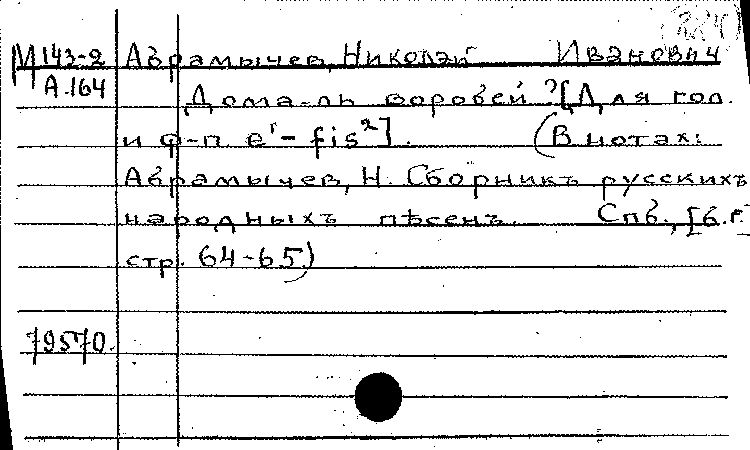 224
М 143-2 Абрамычев, Николай Иванович
А.164
Дома-ль воробей? [Для гол.
и ф-п. e¹-fis²]. (В нотах:
Абрамычев, Н. Сборникъ русскихъ
народныхъ пѣсенъ. Спб., [б.г.]
стр. 64-65.)
79570.